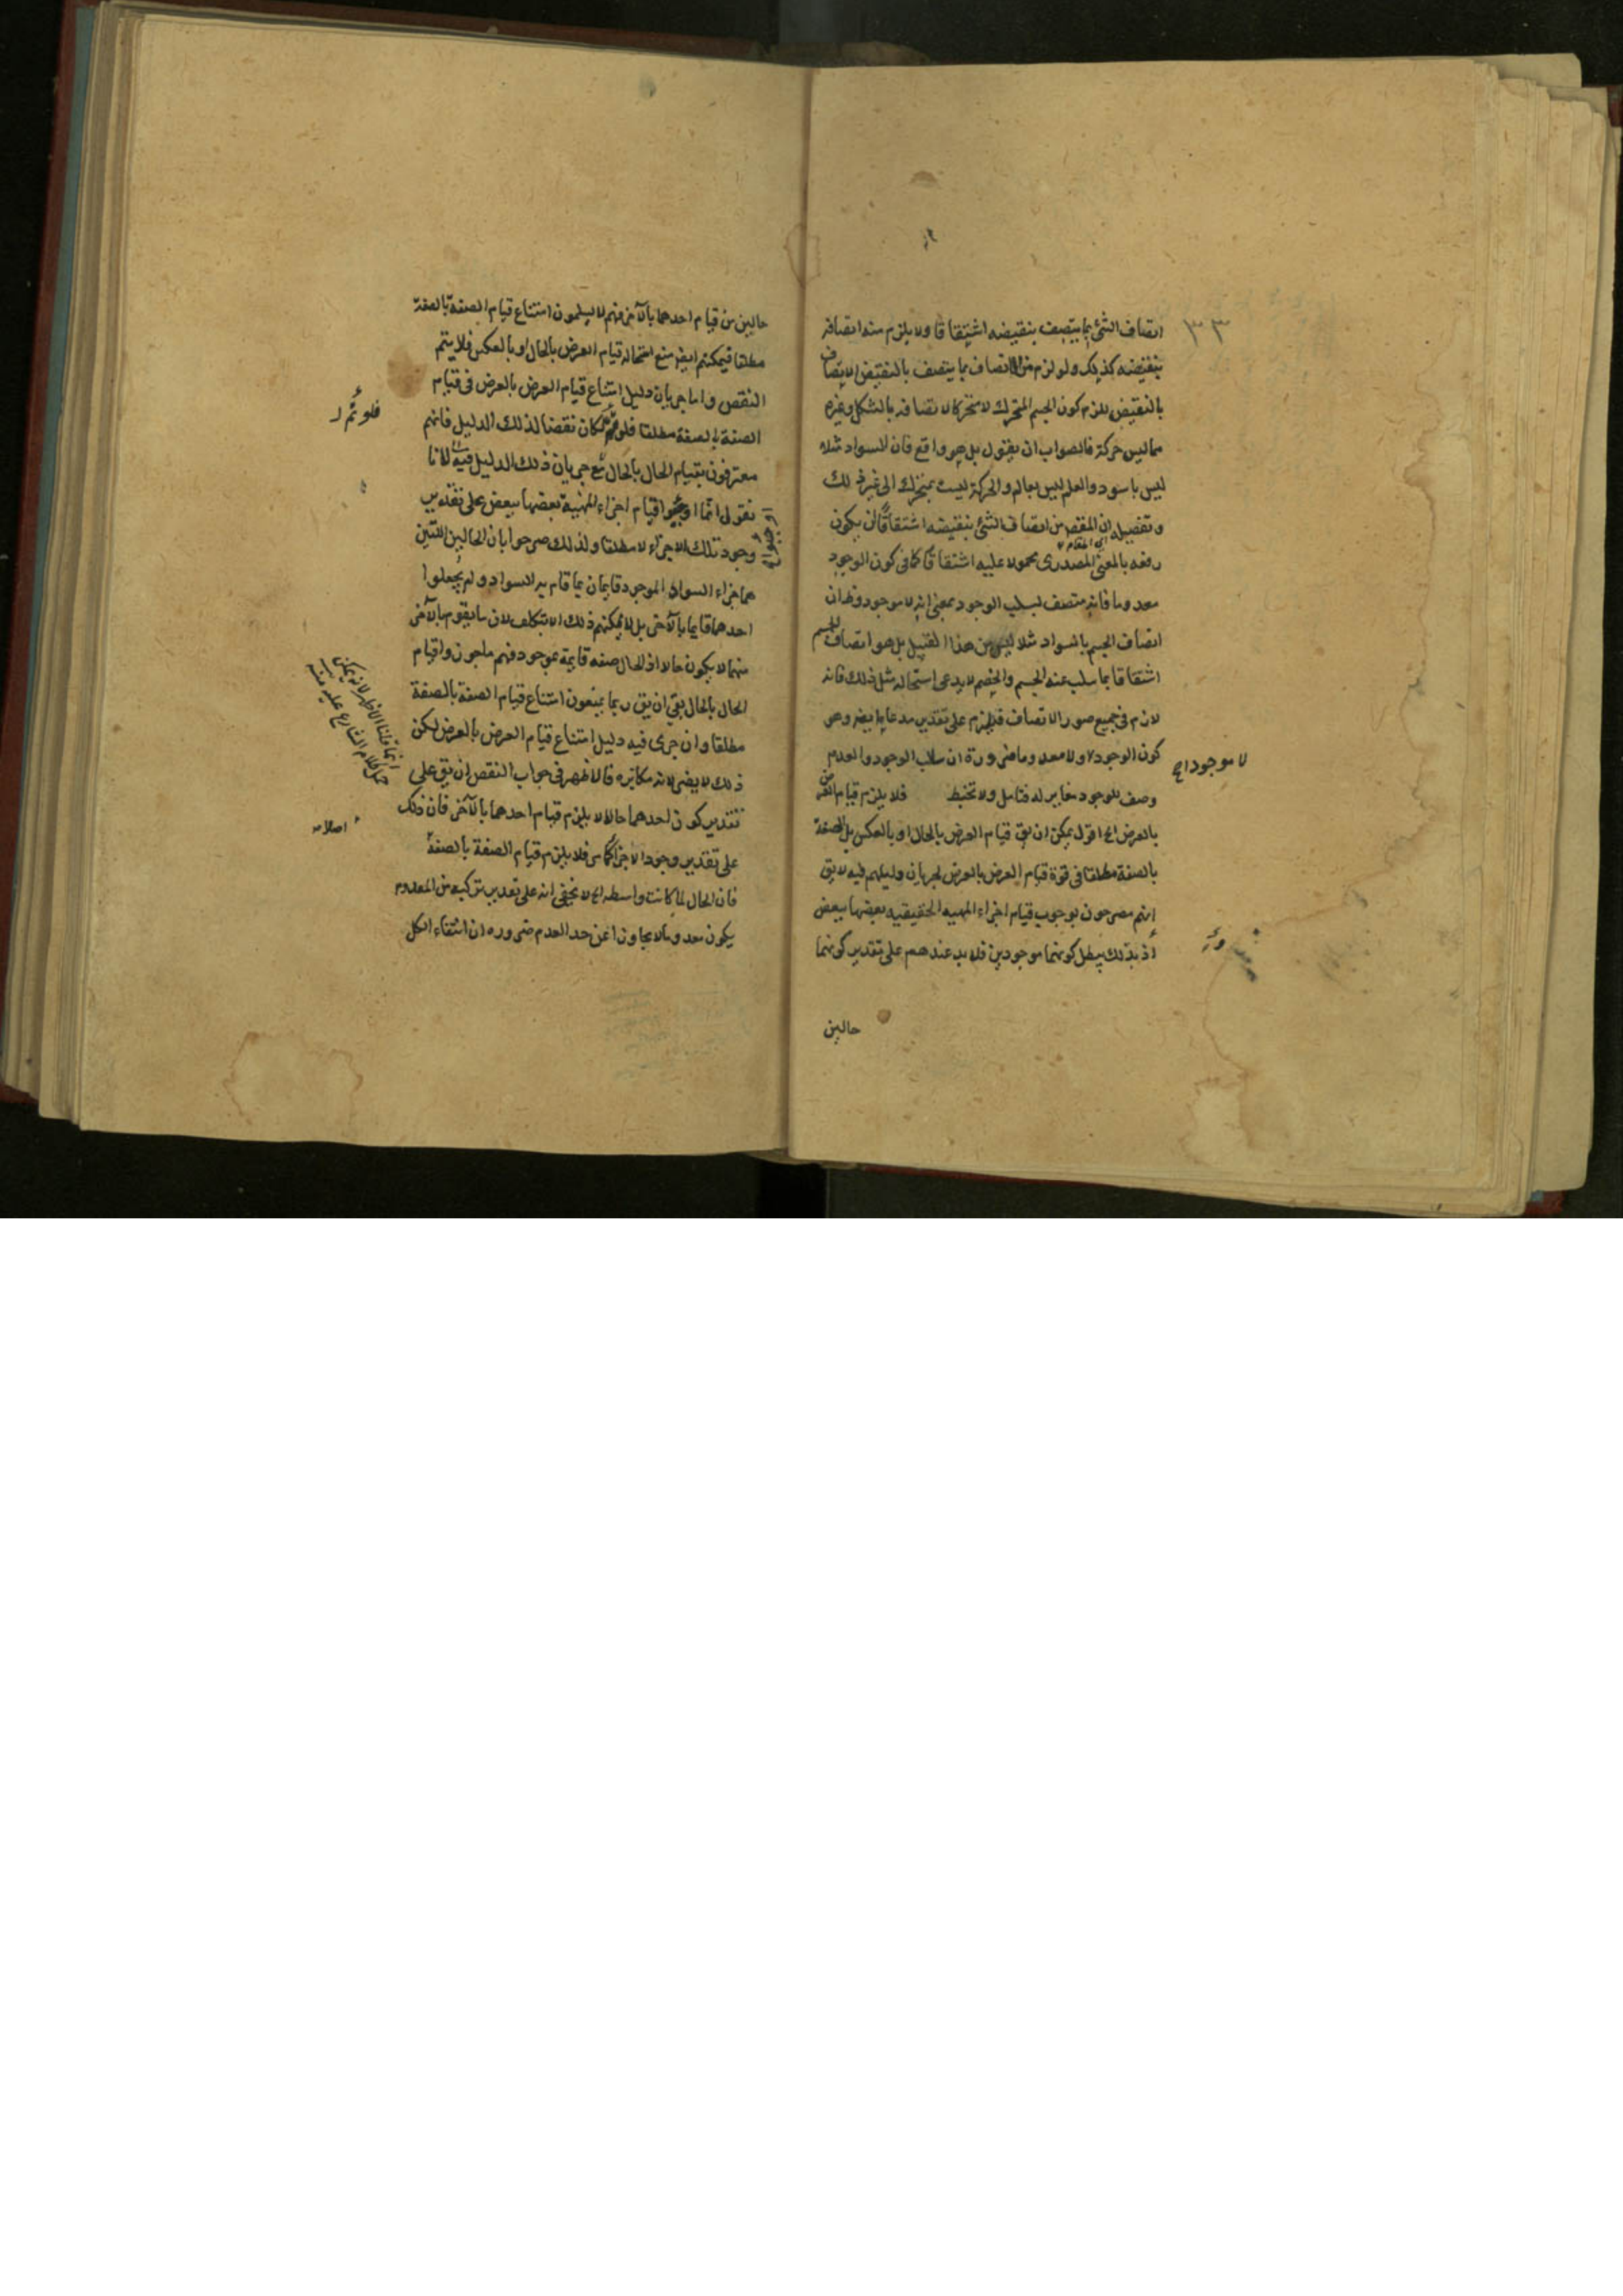 ٣٣
اتصاف الشئ بما يتصف بنقيضه اشتقاقا ولا يلزم منه اتصافه
بنقيضه كذلك ولو لزم من الاتصاف بما يتصف بالنقيض الاتصاف
بالنقيض للزم كون الجسم المتحرك لا متحركا لاتصافه بالشكل وغيره
مما ليس حركة فالصواب ان يقول بل هو واقع فان السواد مثلا
ليس باسود والعلم ليس بعالم والحركة ليست بمتحرك الى غير ذلك
وتفصيله ان المقصر من اتصاف الشئ بنقيضه اشتقاقا ان يكون
رفعه بالمعنى المصدرى محمولا عليه اشتقاقا كما فى كون الوجود
معدوما فانه متصف بسلب الوجود بمعنى انه لا موجود وظ ان
اتصاف الجسم بالسواد مثلا ليس من هذا القبيل بل هو اتصاف الجسم
اشتقاقا بما سلب عنه الجسم والخصم لا يدعى استحاله مثل ذلك فانه
لازم فى جميع صور الاتصاف على تقدير مدعاه ايضر وهو
كون الوجود لا ولا معدوما ضرورة ان سلب الوجود والعدم
لا موجودا صح
وصف للوجود مغاير له فتامل ولا تخبط فلا يلزم قيام العرض
بالعرض الخ اقول يمكن ان يق قيام العرض بالحال او بالعكس بل الصفة
بالصفة مطلقا فى قوة قيام العرض بالعرض لجريان دليلهم فيه لا يق
انهم مصرحون بوجوب قيام اجزاء المهيه الحقيقيه بعضها ببعض
اذ بذلك يبطل كونهما موجودين فلا بد عندهم على تقدير كونهما
حالين
حالين من قيام احدهما بالآخر فهم لا يسلمون امتناع قيام الصفة بالصفة
مطلقا فيمكنهم ايضر منع استحاله قيام العرض بالحال او بالعكس فلا يتم
النقص واما جريان دليل امتناع قيام العرض بالعرض فى قيام
الصفة بالصفة مطلقا فلو تم لكان نقضا لذلك الدليل فانهم
فلو تم لـ
معترفون بقيام الحال بالحال مع جريان ذلك الدليل فيه لانا
نقول انما اوجبوا قيام اجزاء المهية بعضها ببعض على تقدير
اوجبوا
وجود تلك الاجزاء لا مطلقا ولذلك صرحوا بان الحالين اللتين
هما جزاء السواد الموجود قايمان بما قام به السواد ولم يجعلوا
احدهما قايما بالآخر بل لا يمكنهم ذلك الا بتكلف لان ما يقوم بالآخر
منهما لا يكون حالا اذ الحال صفه قايمة بموجود فهم ملجون واقيام
الحال بالحال بقى ان يق ربما يمنعون امتناع قيام الصفة بالصفة
مطلقا وان جرى فيه دليل امتناع قيام العرض بالعرض لكن
ذلك لا يضر لانه مكابره فالاظهر فى جواب النقص ان يق على
انما قلنا الاظهر لانه يمكن
حمل كلام الشارح عليه منه
تقدير كون احدهما حالا لا يلزم قيام احدهما بالآخر فان ذلك
اصلا
على تقدير وجود الاجزاء كما مر فلا يلزم قيام الصفة بالصفة
فان الحال لما كانت واسطه الخ لا يخفى انه على تقدير تركبه من المعدوم
يكون معدوما لا يجاوزا عن حد العدم ضروره ان انتفاء الكل